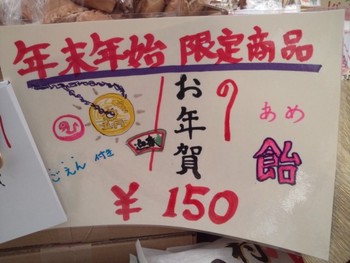 年末年始 限定商品
あめ
飴
の
お年賀
ごえん 付き
¥150